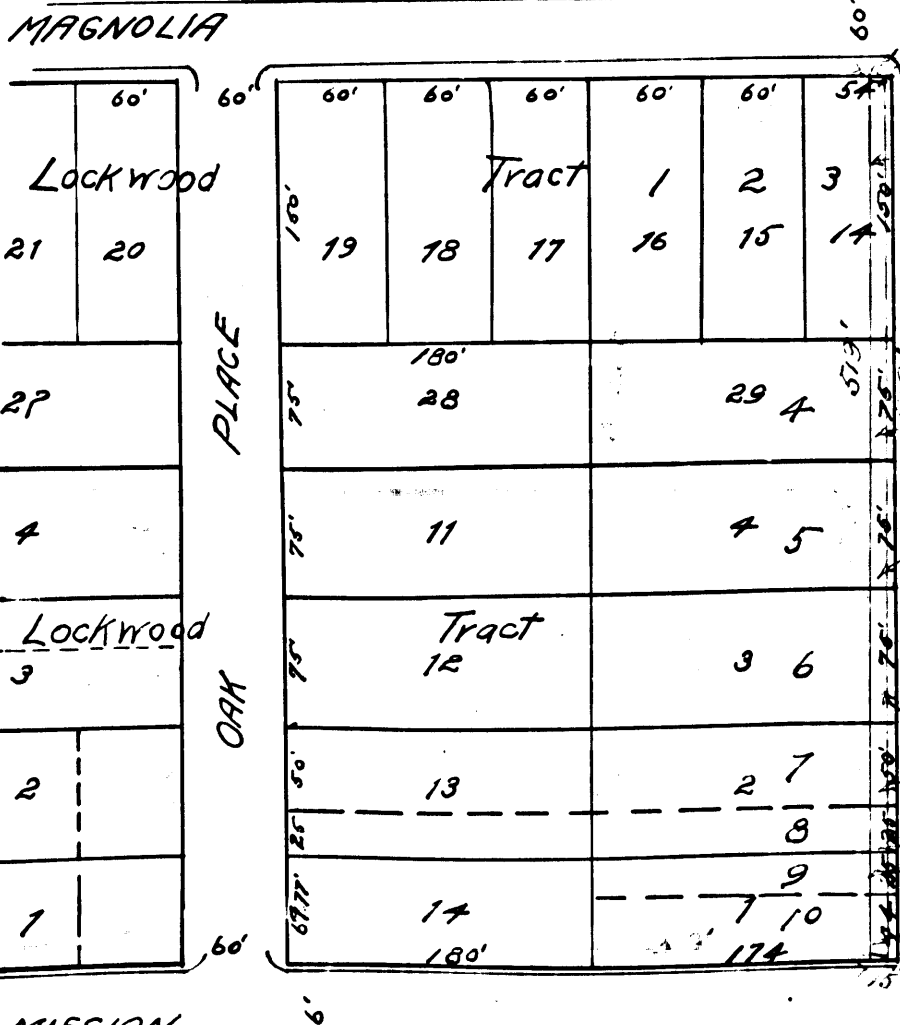 MAGNOLIA
60'
60' 60' 60' 60' 60' 60' 60' 54
Lockwood Tract 1 2 3
150' 150'
21 20 19 18 17 16 15 14
PLACE
180' 513'
75' 28 29 4 75'
4 75' 11 4 5 75'
Lockwood Tract
3 75' 12 3 6 75'
OAK
2 50' 13 2 7 50'
25 8
9
1 69.77' 14 1 10
60' 180' 174
15
MISSION
6'